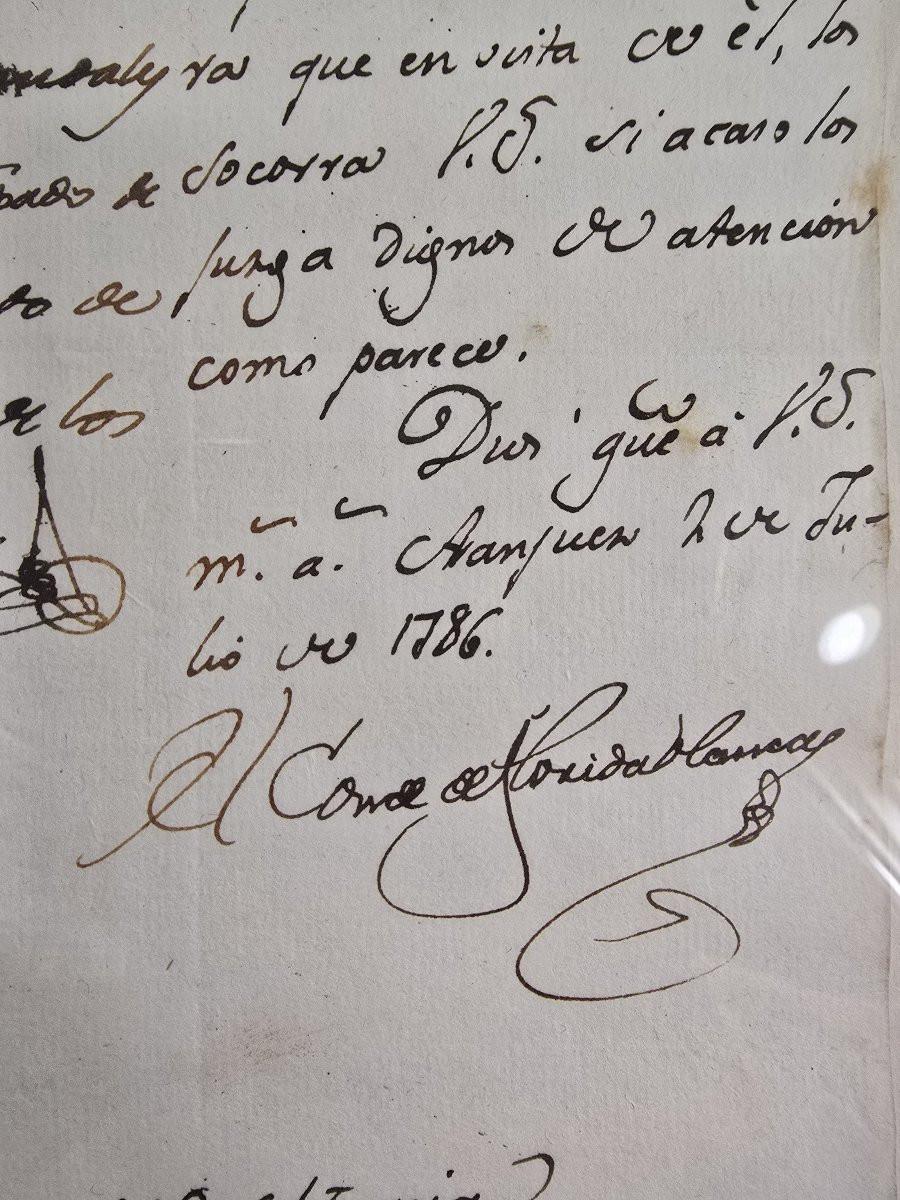 ra que en vista de èl, los
de Socorra V.S. si acaso los
to de Juzga dignos de atención
como parece.
de los
Dios gūe à V.S.
m.s a.s Aranjuez 2 de Ju-
lio de 1786.
El Conde de Floridablanca